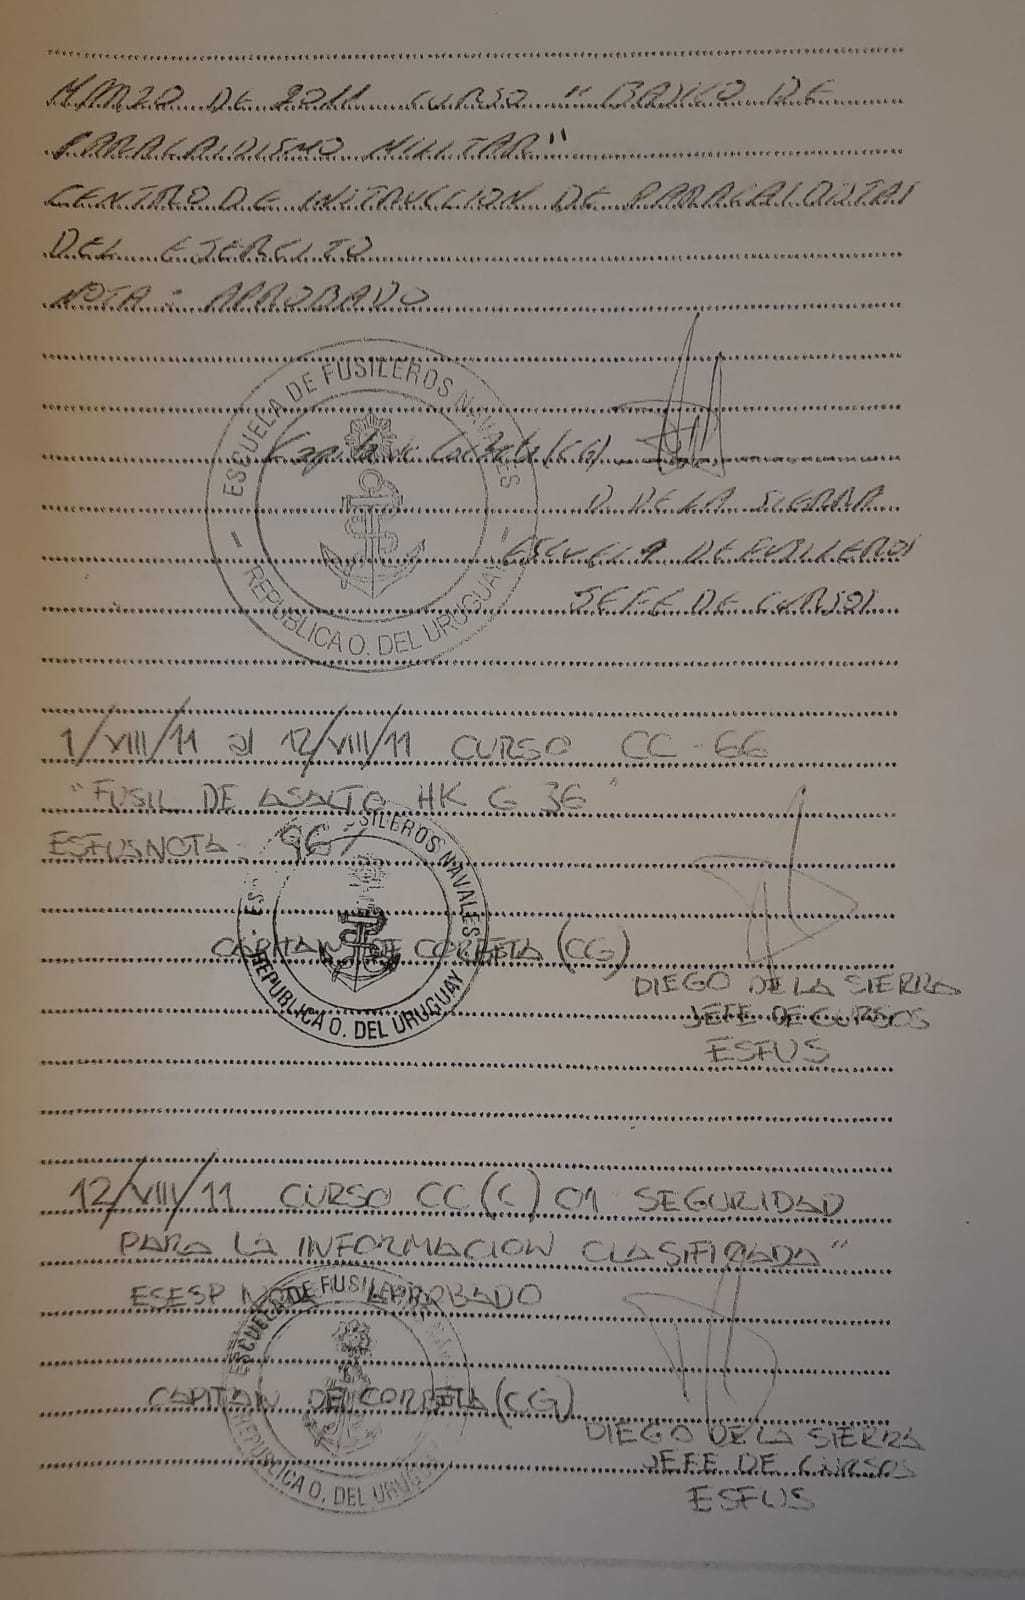 MARZO DE 2011 CURSO "BASICO DE
PARACAIDISMO MILITAR"
CENTRO DE INSTRUCCION DE PARACAIDISTAS
DEL EJERCITO
NOTA: APROBADO
ESCUELA DE FUSILEROS NAVALES
- REPUBLICA O. DEL URUGUAY -
Capitán de Corbeta (CG)
D. DE LA SIERRA
ESCUELA DE FUSILEROS
JEFE DE CURSOS
1/VIII/11 al 12/VIII/11 CURSO CC-66
"FUSIL DE ASALTO HK G 36"
ESFUS NOTA 96
ES SILEROS NAVALES
- REPUBLICA O. DEL URUGUAY
CAPITAN DE CORBETA (CG)
DIEGO DE LA SIERRA
JEFE DE CURSOS
ESFUS
12/VIII/11 CURSO CC (C) 01 SEGURIDAD
PARA LA INFORMACION CLASIFICADA"
ESESP NOTA APROBADO
ESCUELA DE FUSIL
REPUBLICA O. DEL URUGUA
CAPITAN DE CORBETA (CG)
DIEGO DE LA SIERRA
JEFE DE CURSOS
ESFUS